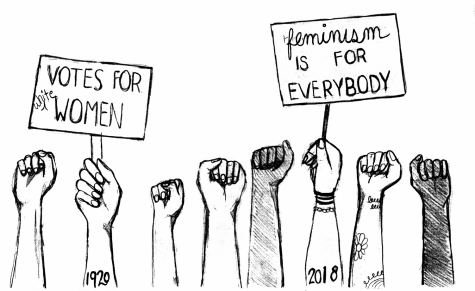 VOTES FOR
white
WOMEN
feminism
IS FOR
EVERYBODY
1920
2018